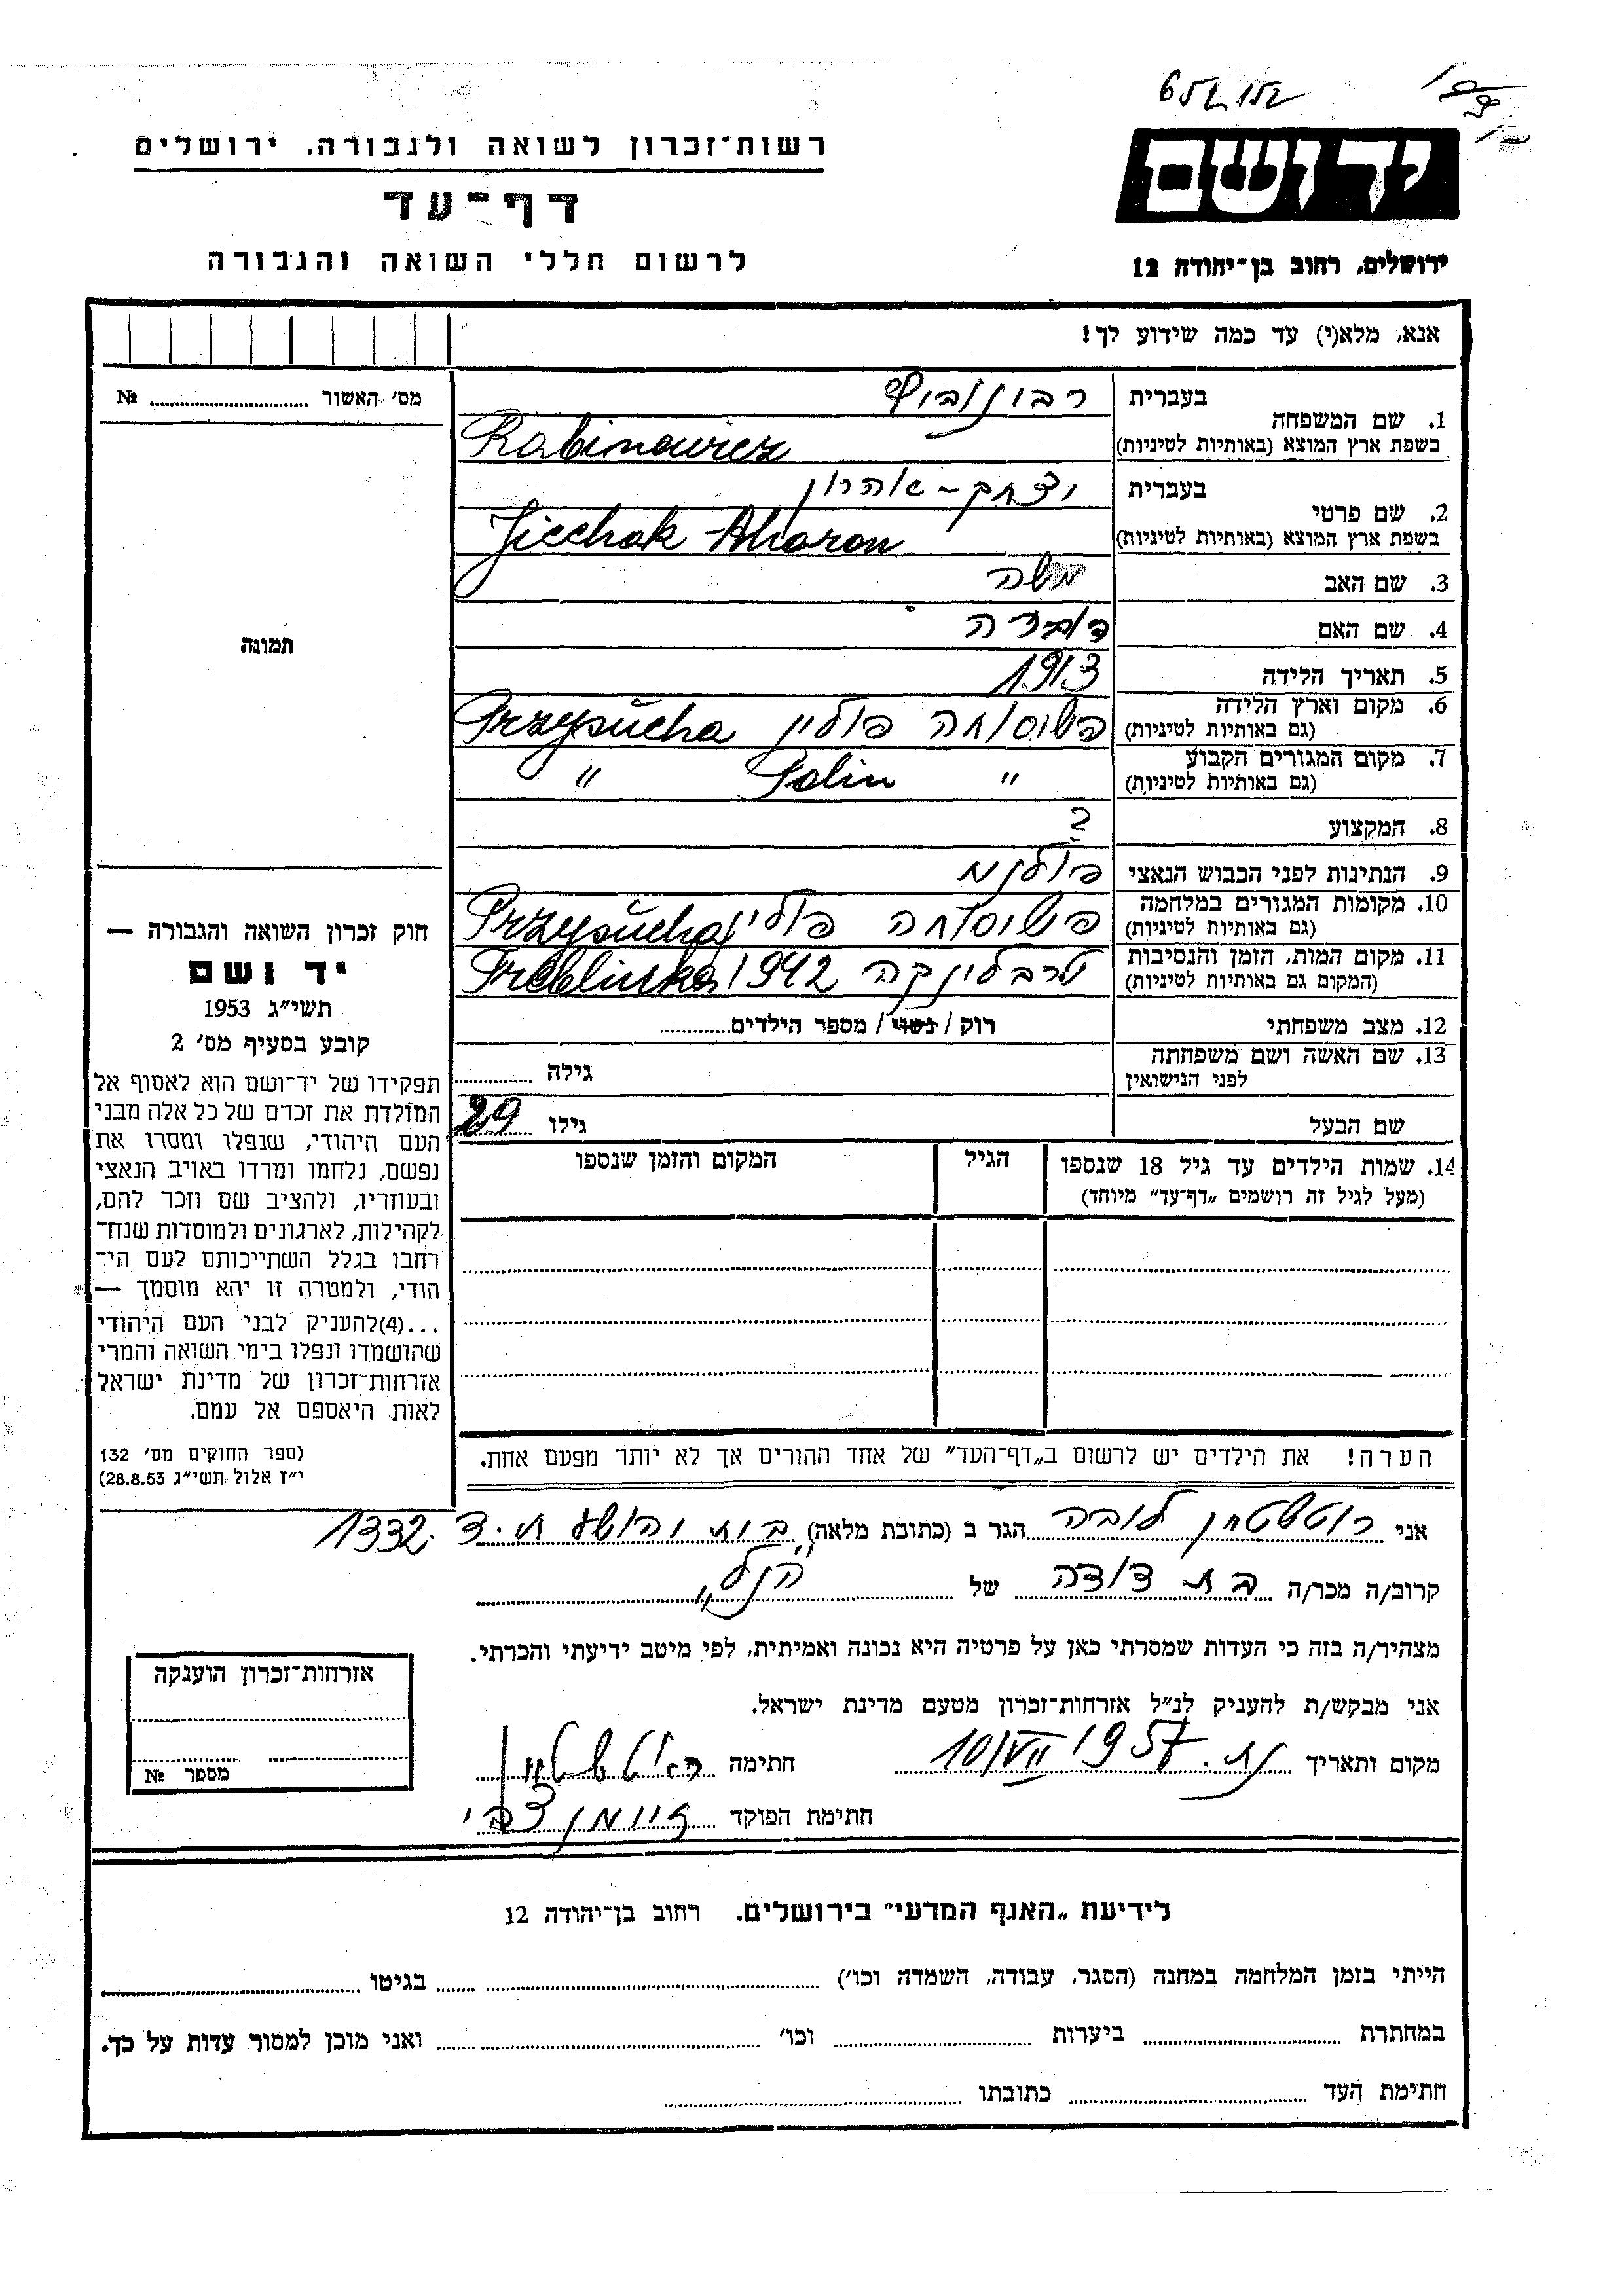 652 152
רשות־זכרון לשואה ולגבורה, ירושלים
דף־עד
לרשום חללי השואה והגבורה
יד ושם
ירושלים, רחוב בן־יהודה 12
אנא, מלא(י) עד כמה שידוע לך!
מס׳ האשור № ..........
תמונה
1. שם המשפחה
בעברית רבינוביץ
בשפת ארץ המוצא (באותיות לטיניות) Rabinowicz
2. שם פרטי
בעברית יצחק-אהרון
בשפת ארץ המוצא (באותיות לטיניות) Jicchak-Aharon
3. שם האב משה
4. שם האם דבורה
5. תאריך הלידה 1913
6. מקום וארץ הלידה פשיסוחה פולין Przysucha
(גם באותיות לטיניות)
7. מקום המגורים הקבוע " Polin "
(גם באותיות לטיניות)
8. המקצוע ?
9. הנתינות לפני הכבוש הנאצי פולנית
10. מקומות המגורים במלחמה פשיסוחה פולין Przysucha
(גם באותיות לטיניות)
11. מקום המות, הזמן והנסיבות טרבלינקה 1942 Treblinka
(המקום גם באותיות לטיניות)
12. מצב משפחתי רוק / נשוי / מספר הילדים..........
13. שם האשה ושם משפחתה
לפני הנישואין
גילה ..........
שם הבעל גילו 29
14. שמות הילדים עד גיל 18 שנספו
(מעל לגיל זה רושמים „דף־עד״ מיוחד)
הגיל
המקום והזמן שנספו
הערה! את הילדים יש לרשום ב„דף־העד״ של אחד ההורים אך לא יותר מפעם אחת.
חוק זכרון השואה והגבורה —
יד ושם
תשי״ג 1953
קובע בסעיף מס׳ 2
תפקידו של יד־ושם הוא לאסוף אל
המולדת את זכרם של כל אלה מבני
העם היהודי, שנפלו ומסרו את
נפשם, נלחמו ומרדו באויב הנאצי
ובעוזריו, ולהציב שם וזכר להם,
לקהילות, לארגונים ולמוסדות שנח־
רחבו בגלל השתייכותם לעם הי־
הודי, ולמטרה זו יהא מוסמך —
...(4)להעניק לבני העם היהודי
שהושמדו ונפלו בימי השואה והמרי
אזרחות־זכרון של מדינת ישראל
לאות היאספם אל עמם.
(ספר החוקים מס׳ 132
י״ז אלול תשי״ג 28.8.53)
אני רוטשטיין לובה הגר ב (כתובת מלאה) בית יהושע ת.ד 1332
קרוב/ה מכר/ה בת דודה של „הנ״ל״
מצהיר/ה בזה כי העדות שמסרתי כאן על פרטיה היא נכונה ואמיתית, לפי מיטב ידיעתי והכרתי.
אני מבקש/ת להעניק לנ״ל אזרחות־זכרון מטעם מדינת ישראל.
מקום ותאריך נת. 10/VII 1957 חתימה רוטשטיין
חתימת הפוקד ניימן צבי
אזרחות־זכרון הוענקה
מספר №
לידיעת „האגף המדעי״ בירושלים, רחוב בן־יהודה 12
הייתי בזמן המלחמה במחנה (הסגר, עבודה, השמדה וכו׳) .......... בגיטו ..........
במחתרת .......... ביערות .......... וכו׳ .......... ואני מוכן למסור עדות על כך.
חתימת העד .......... כתובתו ..........